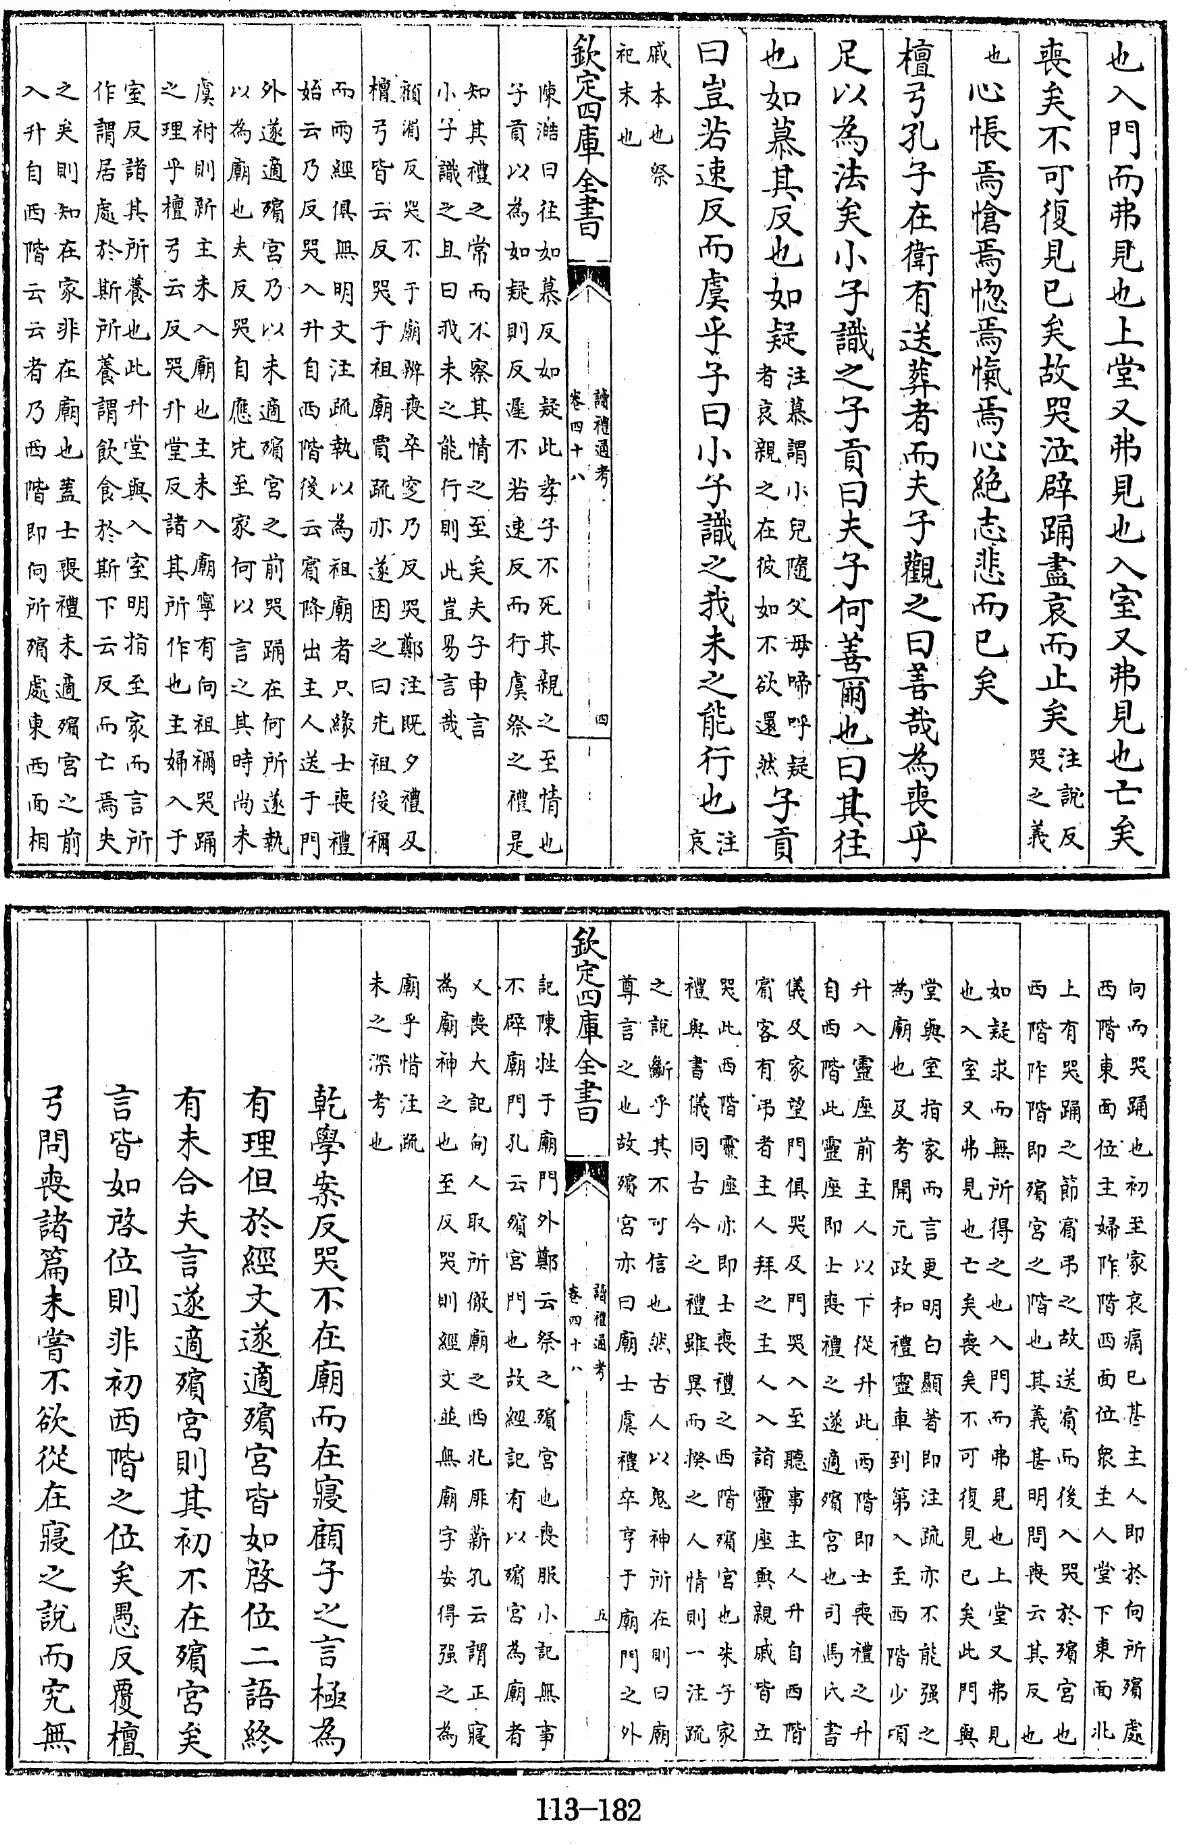 也入門而弗見也上堂又弗見也入室又弗見也亡矣
喪矣不可復見已矣故哭泣辟踊盡哀而止矣注說反哭之義
也心悵焉愴焉惚焉愾焉心絕志悲而已矣
檀弓孔子在衛有送葬者而夫子觀之曰善哉為喪乎
足以為法矣小子識之子貢曰夫子何善爾也曰其往
也如慕其反也如疑注慕謂小兒隨父母啼呼疑者哀親之在彼如不欲還然子貢
曰豈若速反而虞乎子曰小子識之我未之能行也注哀
戚本也祭
祀末也
欽定四庫全書
讀禮通考
卷四十八
四
陳澔曰往如慕反如疑此孝子不死其親之至情也
子貢以為如疑則反遲不若速反而行虞祭之禮是
知其禮之常而不察其情之至矣夫子申言
小子識之且曰我未之能行則此豈易言哉
顧湄反哭不于廟辨喪卒窆乃反哭鄭注既夕禮及
檀弓皆云反哭于祖廟賈疏亦遂因之曰先祖後禰
而兩經俱無明文注疏執以為祖廟者只緣士喪禮
始云乃反哭入升自西階後云賓降出主人送于門
外遂適殯宮乃以未適殯宮之前哭踊在何所遂執
以為廟也夫反哭自應先至家何以言之其時尚未
虞祔則新主未入廟也主未入廟寧有向祖禰哭踊
之理乎檀弓云反哭升堂反諸其所作也主婦入于
室反諸其所養也此升堂與入室明指至家而言所
作謂居處於斯所養謂飲食於斯下云反而亡焉失
之矣則知在家非在廟也蓋士喪禮未適殯宮之前
入升自西階云云者乃西階即向所殯處東西面相
向而哭踊也初至家哀痛已甚主人即於向所殯處
西階東面位主婦阼階西面位眾主人堂下東面北
上有哭踊之節賓弔之故送賓而後入哭於殯宮也
西階阼階即殯宮之階也其義甚明問喪云其反也
如疑求而無所得之也入門而弗見也上堂又弗見
也入室又弗見也亡矣喪矣不可復見已矣此門與
堂與室指家而言更明白顯著即注疏亦不能强之
為廟也及考開元政和禮靈車到第入至西階少頃
升入靈座前主人以下從升此西階即士喪禮之升
自西階此靈座即士喪禮之遂適殯宮也司馬氏書
儀及家望門俱哭及門哭入至聽事主人升自西階
賓客有弔者主人拜之主人入詣靈座與親戚皆立
哭此西階靈座亦即士喪禮之西階殯宮也朱子家
禮與書儀同古今之禮雖異而揆之人情則一注疏
之說斷乎其不可信也然古人以鬼神所在則曰廟
尊言之也故殯宮亦曰廟士虞禮卒亨于廟門之外
欽定四庫全書
讀禮通考
卷四十八
五
記陳牲于廟門外鄭云祭之殯宮也喪服小記無事
不辟廟門孔云殯宮門也故經記有以殯宮為廟者
又喪大記甸人取所徹廟之西北厞薪孔云謂正寢
為廟神之也至反哭則經文並無廟字安得强之為
廟乎惜注疏
未之深考也
乾學案反哭不在廟而在寢顧子之言極為
有理但於經文遂適殯宮皆如啓位二語終
有未合夫言遂適殯宮則其初不在殯宮矣
言皆如啓位則非初西階之位矣愚反覆檀
弓問喪諸篇未嘗不欲從在寢之說而究無
113-182